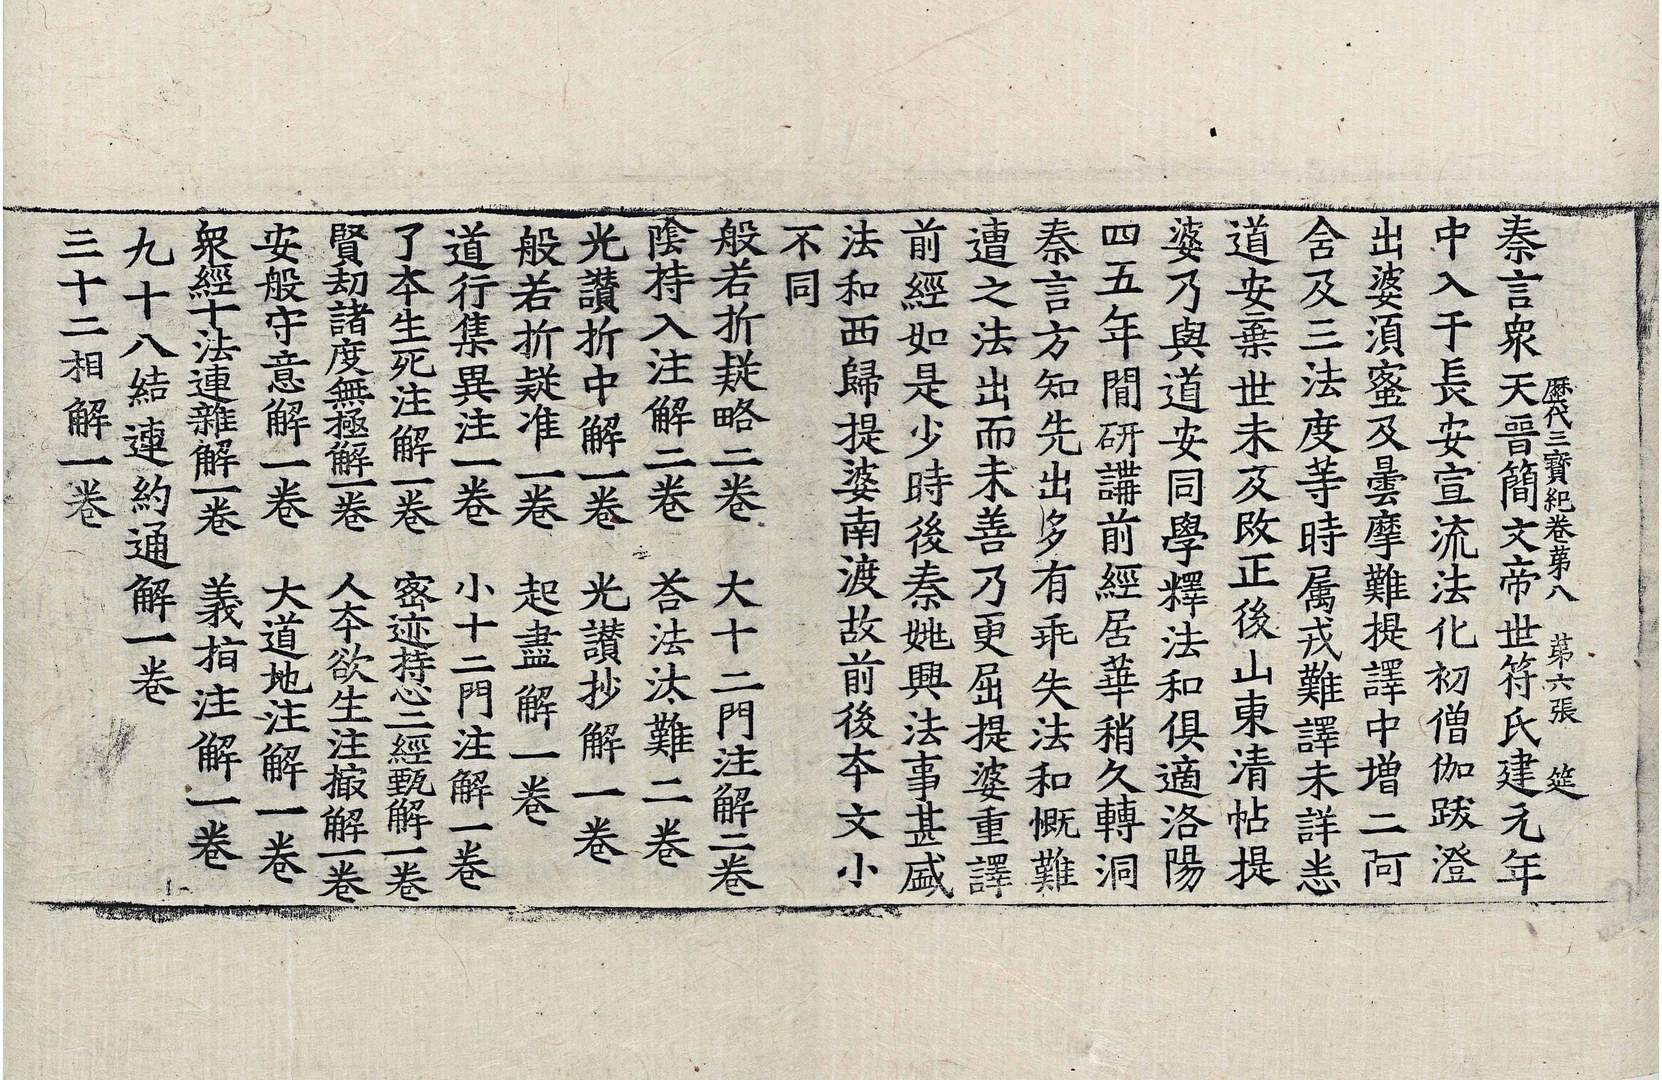 歷代三寶紀卷苐八 苐六張 筵
秦言衆天晉簡文帝世符氏建元年
中入于長安宣流法化初僧伽跋澄
出婆湏蜜及曇摩難提譯中增二阿
含及三法度等時属戎難譯未詳悉
道安棄世未及改正後山東清帖提
婆乃與道安同學釋法和俱適洛陽
四五年間研講前經居華稍久轉洞
秦言方知先出多有乖失法和慨難
遭之法出而未善乃更屈提婆重譯
前經如是少時後秦姚興法事甚盛
法和西歸提婆南渡故前後夲文小
不同
般若折疑略二卷 大十二門注解二卷
陰持入注解二卷 荅法汰難二卷
光讚折中解一卷 光讚抄解一卷
般若折疑准一卷 起盡解一卷
道行集異注一卷 小十二門注解一卷
了夲生死注解一卷 密迹持心二經甄解一卷
賢劫諸度無極解一卷 人夲欲生注撮解一卷
安般守意解一卷 大道地注解一卷
衆經十法連雜解一卷 義指注解一卷
九十八結連約通解一卷
三十二相解一卷